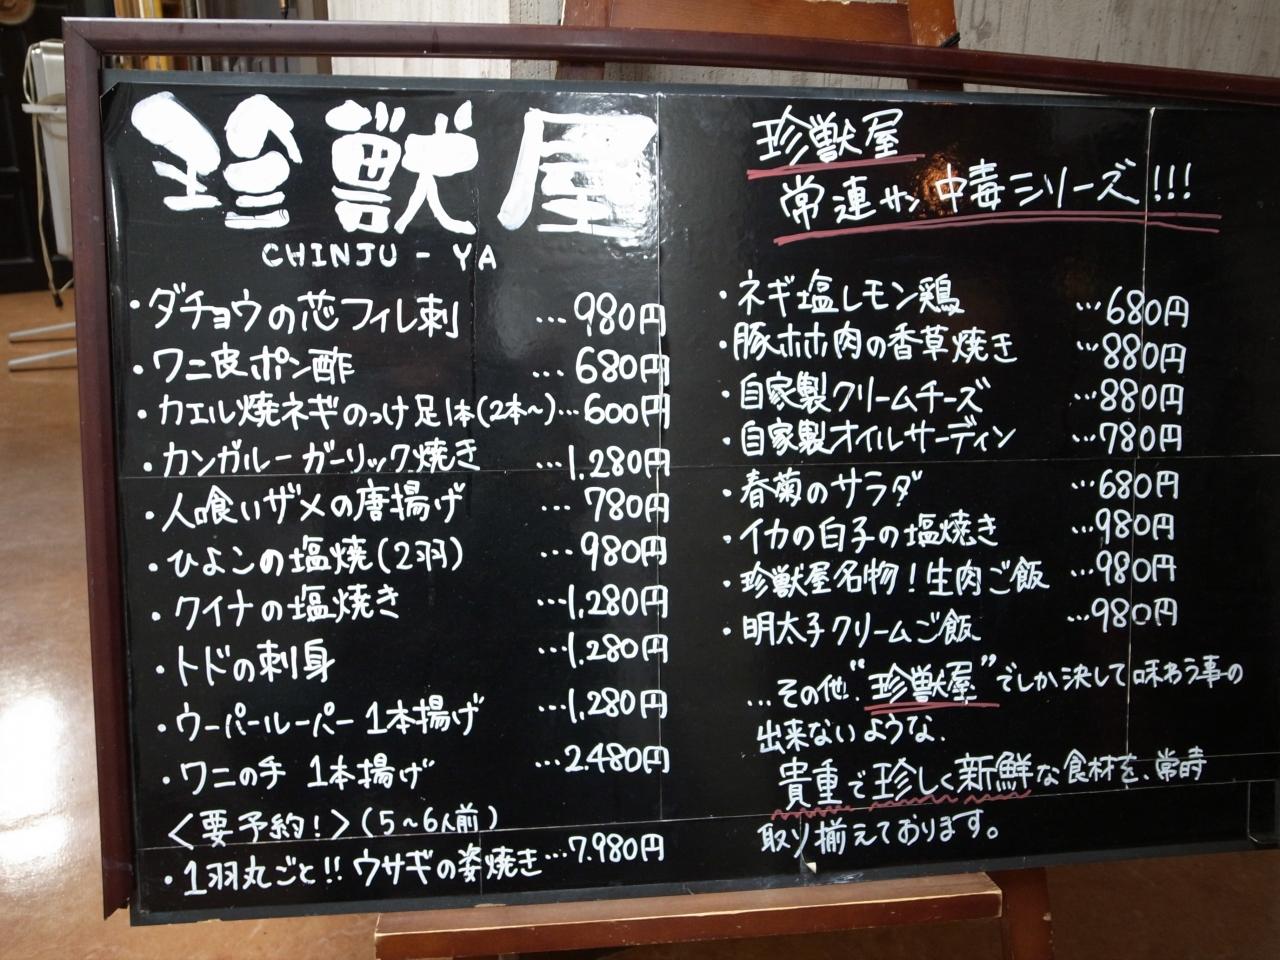 珍獣屋
CHINJU-YA
・ダチョウの芯フィレ刺 …980円
・ワニ皮ポン酢 …680円
・カエル焼ネギのっけ足1本(2本〜)…600円
・カンガルーガーリック焼き …1,280円
・人喰いザメの唐揚げ …780円
・ひよこの塩焼(2羽) …980円
・クイナの塩焼き …1,280円
・トドの刺身 …1,280円
・ウーパールーパー1本揚げ …1,280円
・ワニの手 1本揚げ …2.480円
<要予約!>(5〜6人前)
・1羽丸ごと!!ウサギの姿焼き…7.980円
珍獣屋
常連サン中毒シリーズ!!!
・ネギ塩レモン鶏 …680円
・豚ホホ肉の香草焼き …880円
・自家製クリームチーズ …880円
・自家製オイルサーディン …780円
・春菊のサラダ …680円
・イカの白子の塩焼き …980円
・珍獣屋名物!生肉ご飯 …980円
・明太子クリームご飯 …980円
…その他!"珍獣屋"でしか決して味わう事の
出来ないような、
貴重で珍しく新鮮な食材を、常時
取り揃えております。